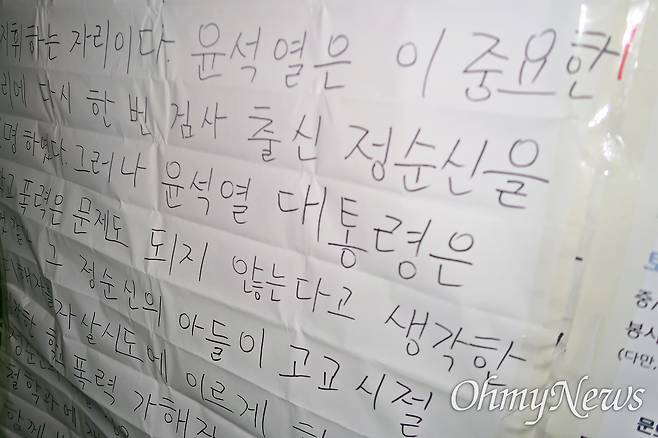 지휘하는 자리이다. 윤석열은 이 중요한
리에 다시 한 번 검사 출신 정순신을
명하였다. 그러나 윤석열 대통령은
교폭력은 문제도 되지 않는다고 생각한
그 정순신의 아들이 고교시절
자살시도에 이르게
폭력 가해자
함께
중
봉사
(다만,
문
OhmyNews